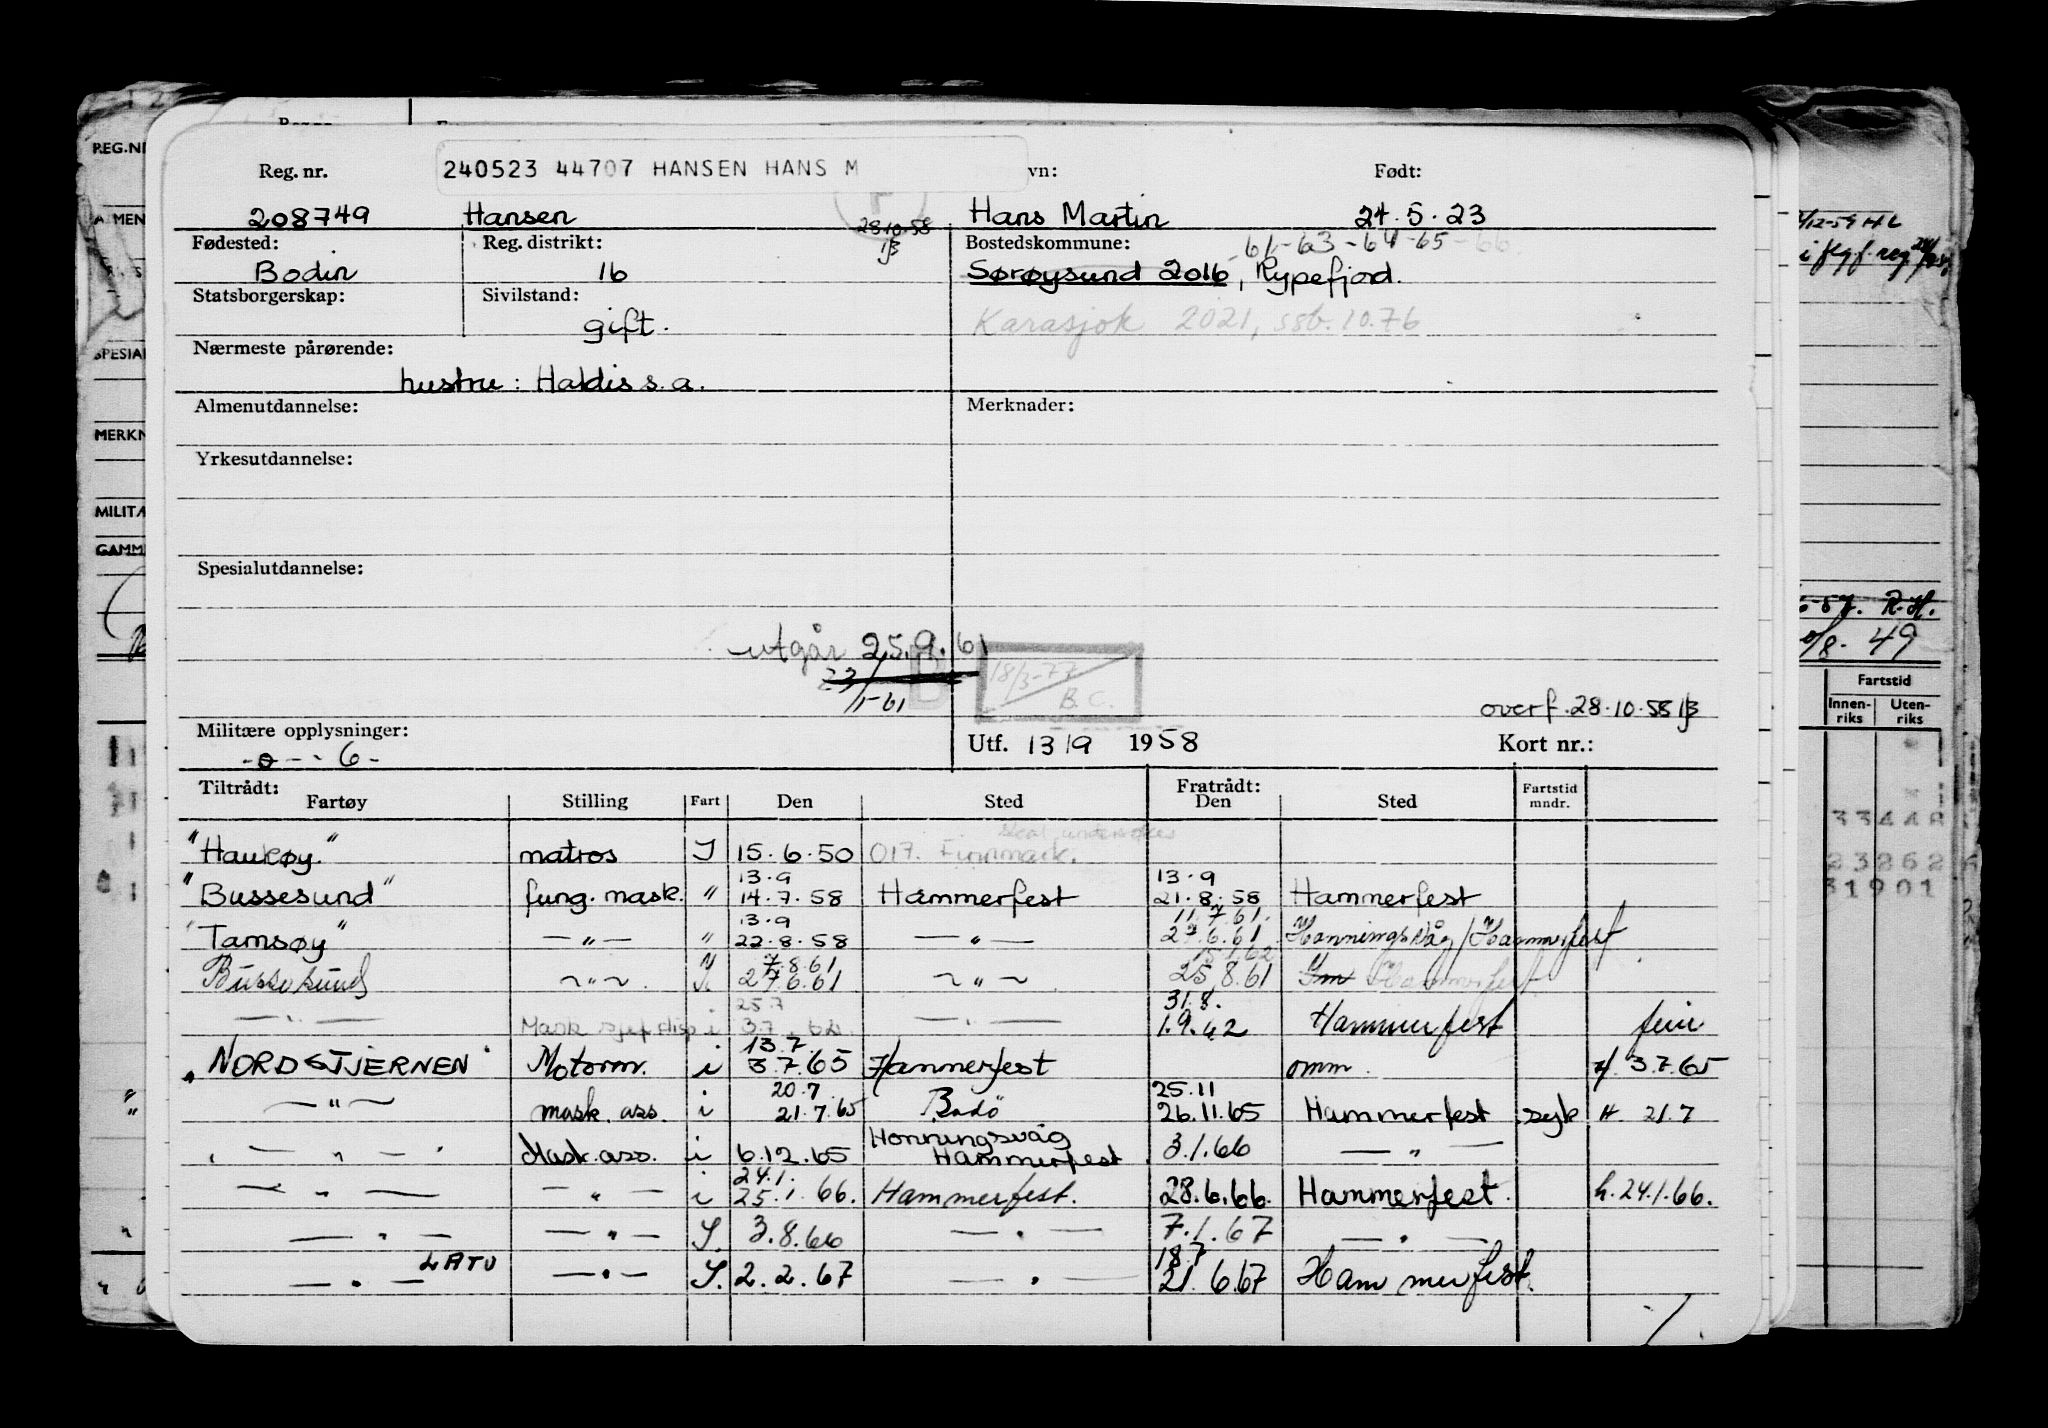 Reg. nr. 240523 44707 HANSEN HANS M vn: Født:
208749 Hansen Hans Martin 24.5.23
28.10.58
Fødested: Reg. distrikt: Bostedskommune: 61-63-64-65-66
Bodin 16 Sørøysund 2016, Rypefjord.
Statsborgerskap: Sivilstand:
gift. Karasjok 2021, ssb. 10.76
Nærmeste pårørende:
hustru: Haldis s.a.
Almenutdannelse: Merknader:
Yrkesutdannelse:
Spesialutdannelse:
utgår 25.9.61
23/1-61
18/3-77
B.C.
overf. 28.10.58
Militære opplysninger: Utf. 13/9 1958 Kort nr.:
-0--6-
Tiltrådt: Fratrådt:
Fartøy Stilling Fart Den Sted Den Sted Fartstid mndr.
skal undersøkes
"Haukøy." matros I 15.6.50 017. Finnmark.
13.9 13.9
"Bussesund" fung. mask. " 14.7.58 Hammerfest 21.8.58 Hammerfest
13.9 11.7.61.
"Tamsøy" —"— " 22.8.58 —"— 27.6.61 Honningsvåg/Hammerfest
7.8.61 15.1.62
Bussesund ~"~ 27.6.61 ~"~ 25.8.61 Hammerfest
25.7 31.8.
—"— Mask sjef disp i 3.7.62 —"— 1.9.62 Hammerfest ferie
13.7.
"NORDSTJERNEN" Motorm. i 3.7.65 Hammerfest omm. H. 3.7.65
20.7 25.11
—"— mask. ass. i 21.7.65 Bodö 26.11.65 Hammerfest syk H. 21.7
Honningsvåg
—"— Mask. ass. i 6.12.65 Hammerfest 3.1.66 —"—
24.1.
—"— —"— i 25.1.66. Hammerfest. 28.6.66. Hammerfest. h. 24.1.66.
—"— —"— I. 3.8.66 —"— 7.1.67 —"—
LATU 18.7
—"— —"— I. 2.2.67 —"— 21.6.67 Hammerfest.
REG.NR
SPESIAL
MERKN
MILITÆ
GAMM
R.H.
49
Fartstid
Innen-riks Uten-riks
33448
23262
31901